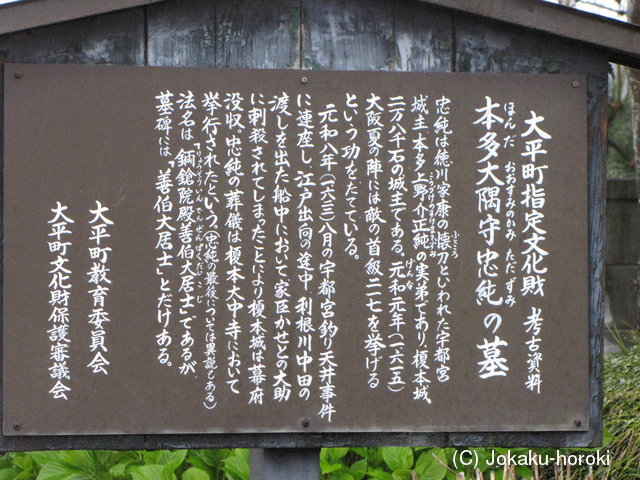 大平町指定文化財 考古資料
本多大隅守忠純の墓
ほんだ おおすみのかみ ただずみ
忠純は徳川家康の懐刀といわれた宇都宮
ふところ
城主、本多上野介正純の実弟であり、榎本城、
こうづけのすけまさずみ
二万八千石の城主である。元和元年(一六一五)
げんな
大阪夏の陣には敵の首級二一七を挙げる
という功をたてている。
元和八年(一六二三)八月の宇都宮釣り天井事件
に連座し、江戸出向の途中、利根川中田の
渡しを出た船中において家臣かせとの大助
に刺殺されてしまったことにより榎本城は幕府
没収。忠純の葬儀は榎本大中寺において
挙行されたという(忠純の最後については異説もある)
法名は「鋼鎗院殿善伯大居士」であるが、
りょうそういんでんぜんぱくだいこじ
墓碑には、「善伯大居士」とだけある。
大平町教育委員会
大平町文化財保護審議会
(C) Jokaku-horoki